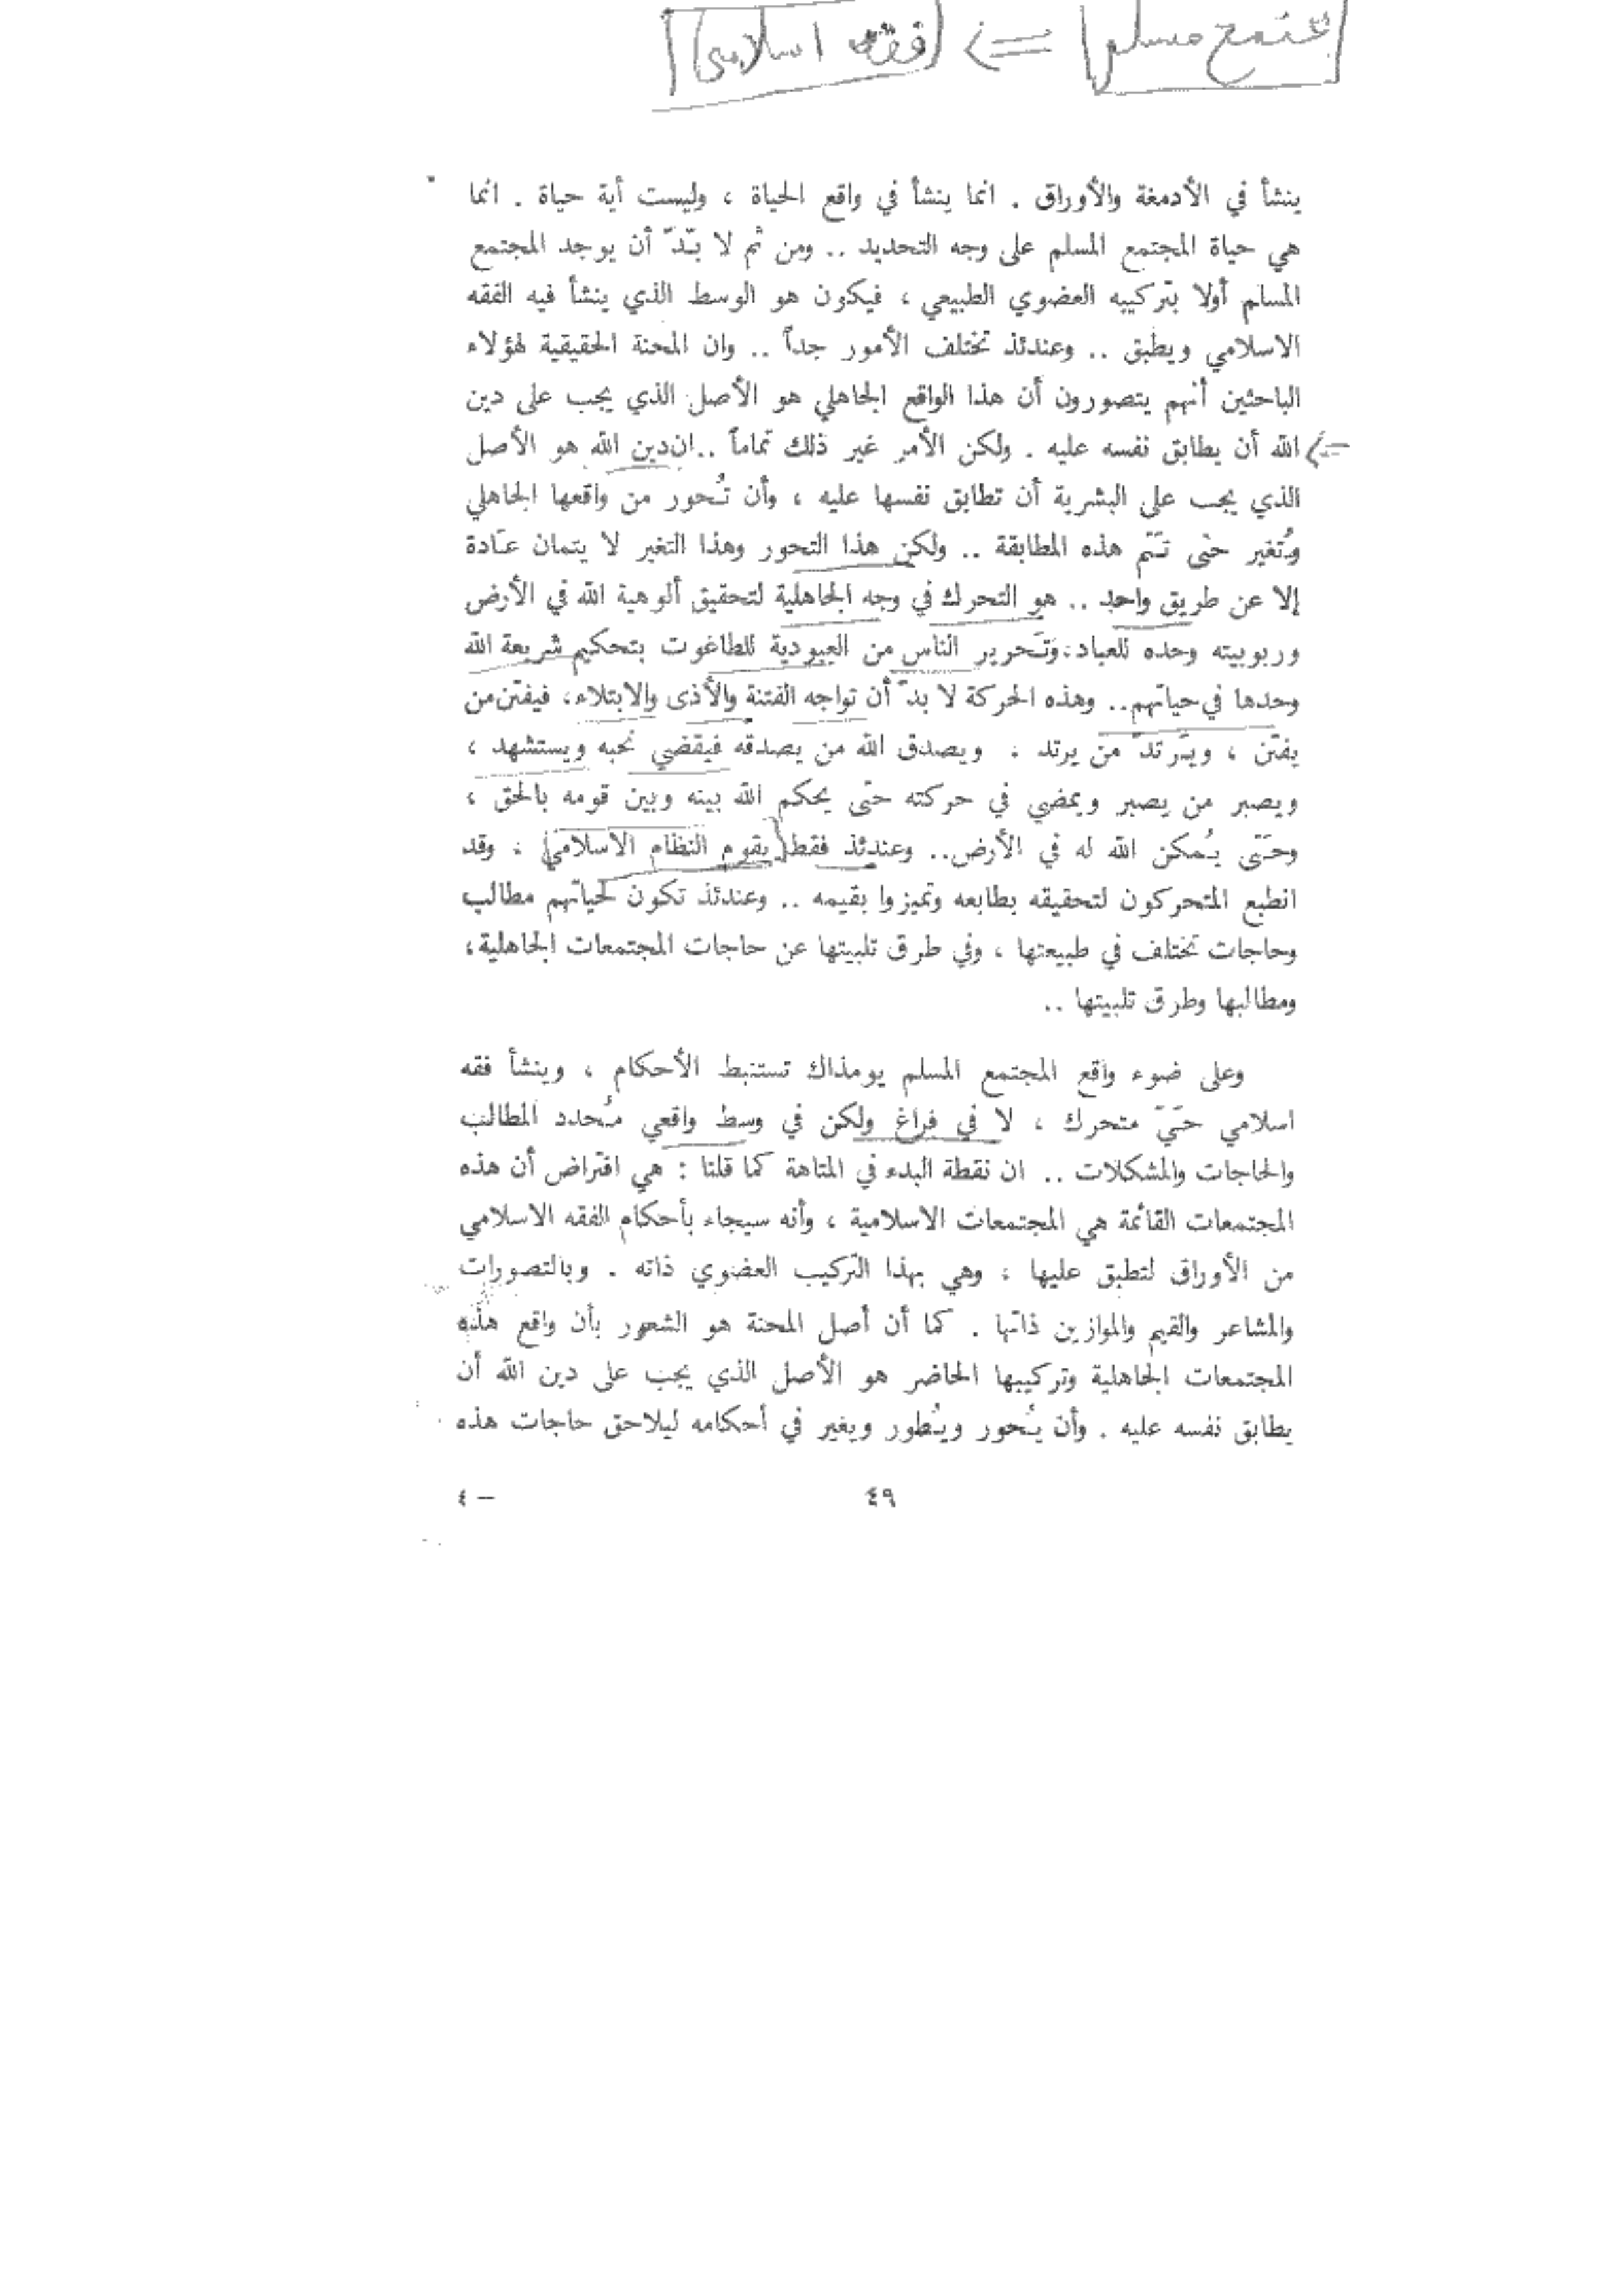 مجتمع مسلم <= فقه اسلامي
ينشأ في الأدمغة والأوراق . انما ينشأ في واقع الحياة ، وليست أية حياة . انما
هي حياة المجتمع المسلم على وجه التحديد .. ومن ثم لا بدّ أن يوجد المجتمع
المسلم أولا بتركيبه العضوي الطبيعي ، فيكون هو الوسط الذي ينشأ فيه الفقه
الاسلامي ويطبق .. وعندئذ تختلف الأمور جداً .. وان المحنة الحقيقية لهؤلاء
الباحثين أنهم يتصورون أن هذا الواقع الجاهلي هو الأصل الذي يجب على دين
الله أن يطابق نفسه عليه . ولكن الأمر غير ذلك تماماً .. ان دين الله هو الأصل
الذي يجب على البشرية أن تطابق نفسها عليه ، وأن تُحور من واقعها الجاهلي
وتُغير حتى تَتم هذه المطابقة .. ولكن هذا التحور وهذا التغير لا يتمان عَادة
إلا عن طريق واحد .. هو التحرك في وجه الجاهلية لتحقيق ألوهية الله في الأرض
وربوبيته وحده للعباد، وتَحرير الناس من العبودية للطاغوت بتحكيم شريعة الله
وحدها في حياتهم .. وهذه الحركة لا بدّ أن تواجه الفتنة والأذى والابتلاء، فيفتن من
يفتن ، ويَرتدّ من يرتد ، ويصدق الله من يصدقه فيقضي نحبه ويستشهد ،
ويصبر من يصبر ويمضي في حركته حتى يحكم الله بينه وبين قومه بالحق ،
وحَتى يُمكن الله له في الأرض .. وعندئذ فقط يقوم النظام الاسلامي ، وقد
انطبع المتحركون لتحقيقه بطابعه وتميزوا بقيمه .. وعندئذ تكون لحياتهم مطالب
وحاجات تختلف في طبيعتها ، وفي طرق تلبيتها عن حاجات المجتمعات الجاهلية،
ومطالبها وطرق تلبيتها ..
وعلى ضوء واقع المجتمع المسلم يومذاك تستنبط الأحكام ، وينشأ فقه
اسلامي حَيّ متحرك ، لا في فراغ ولكن في وسط واقعي مُحدد المطالب
والحاجات والمشكلات .. ان نقطة البدء في المتاهة كما قلنا : هي افتراض أن هذه
المجتمعات القائمة هي المجتمعات الاسلامية ، وأنه سيجاء بأحكام الفقه الاسلامي
من الأوراق لتطبق عليها ، وهي بهذا التركيب العضوي ذاته . وبالتصورات
والمشاعر والقيم والموازين ذاتها . كما أن أصل المحنة هو الشعور بأن واقع هذه
المجتمعات الجاهلية وتركيبها الحاضر هو الأصل الذي يجب على دين الله أن
يطابق نفسه عليه . وأن يُحور ويُطور ويغير في أحكامه ليلاحق حاجات هذه
٤٩
٤ –